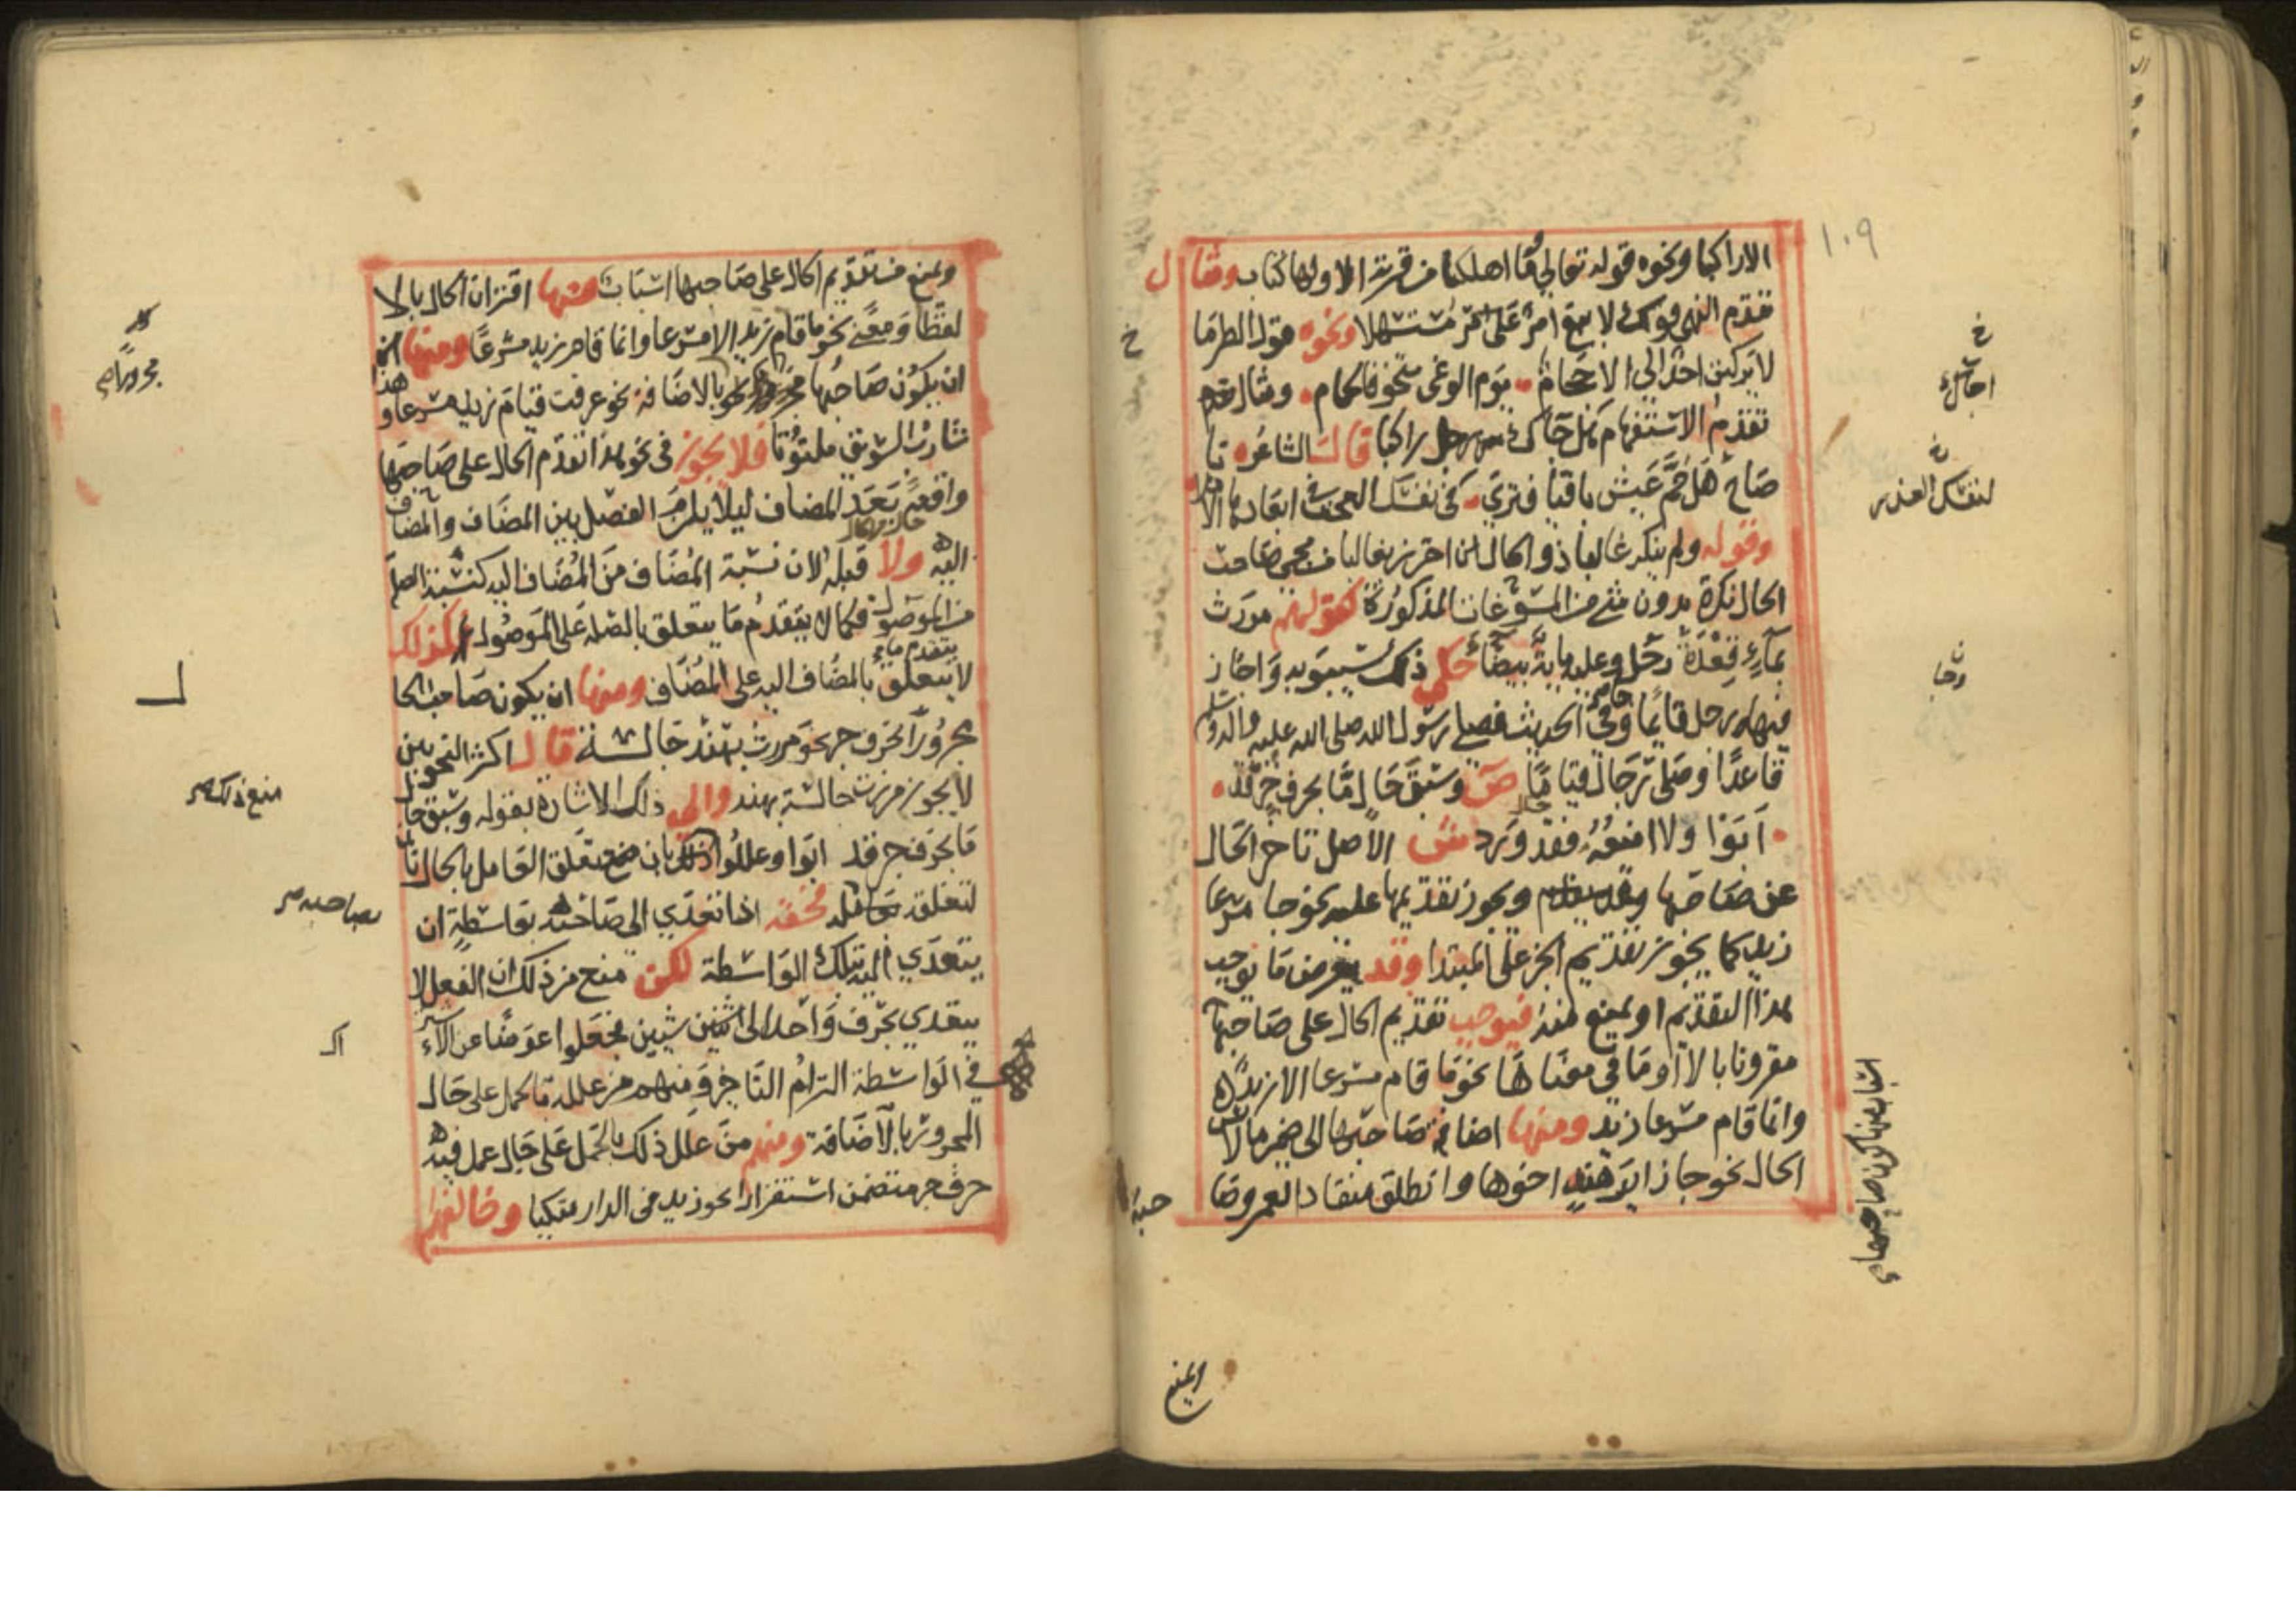 ١٠٩
الا راكبا ونحوه قوله تعالى وما اهلكنا من قرية الا ولها كتاب ومثال
تقدم النهي قولك لا يبغ امرؤ على امرئ مستسهلا ونحوه قول الطرما
لا يركنن احد الى الاحجام يوم الوغى متخوفا لحمام ومثال
تقدم الاستفهام هل جاك رجل راكبا قال الشاعر يا
صاح هل حم عيش باقيا فترى في نفسك العجب في ابعادها الاملا
وقوله ولم ينكر غالبا ذو الحال ان احترز بغالبا من مجي صاحب
الحال نكرة بدون شي من المسوغات المذكورة كقولهم مررت
بماء قعدة رجل وعليه ماية بيضا حكى ذلك سيبويه واجاز
فيها رجل قايما وفي الحديث فصلى رسول الله صلى الله عليه واله وسلم
قاعدا وصلى رجال قياما ص وسبق حال ما بحرف جر قد
ابوا ولا امنعه فقد ورد ش الاصل تاخر الحال
عن صاحبها ويجوز تقديمها عليه نحو جا مسرعا
زيد كما يجوز تقديم الخبر على المبتدا وقد يعرض ما يوجب
هذا التقديم او يمنع منه فيوجب تقديم الحال على صاحبها
مقرونا بالا او ما في معناها نحو ما قام مسرعا الا زيد
وانما قام مسرعا زيد ومنها اضافة صاحبها الى ضمير ما لابس
الحال نحو جا زاير هند اخوها وانطلق منقادا لعمرو صا
حبه
خ
لنفسك العذر
اسباب منها كون صاحبها
ويمنع
ويمنع من تقديم الحال على صاحبها اسباب منها اقتران الحال بالا
لفظا ومعنى نحو ما قام زيد الا مسرعا وانما قام زيد مسرعا ومنها
ان يكون صاحبها بالاضافة نحو عرفت قيام زيد مسرعا وهذا
شارب السويق ملتوتا فلا يجوز في نحو هذا تقدم الحال على صاحبها
واقعة بعد المضاف ليلا يلزم الفصل بين المضاف والمضاف
اليه ولا قبله لان نسبة المضاف من المضاف اليه كنسبة الصلة
من الموصول فكما لا يتقدم ما يتعلق بالصلة على الموصول كذلك
لا يتقدم ما يتعلق بالمضاف اليه على المضاف ومنها ان يكون صاحب الحا
ل
مجرورا بحرف جر نحو مررت بهند جالسة قال اكثر النحويين
لا يجوز مررت جالسة بهند والى ذلك الاشارة بقوله وسبق حال
ما بحرف جر قد ابوا وعللوا بان تعلق العامل بالحال ثان
لتعلقه فحقه اذا تعدى الى صاحبه بواسطة ان
يتعدى اليه بتلك الواسطة لكن منع من ذلك ان الفعل لا
يتعدى بحرف واحد الى شيين فجعلوا عوضا عن الاشتراك
في الواسطة التزام التاخر ومنهم من علله بالحمل على حال
المجرور بالاضافة ومنهم من علل ذلك بالحمل على حال عمل فيه
حرف جر متضمن استقرارا نحو زيد في الدار متكيا وخالفهم
مجرورا
منع ذلك
بصاحبه